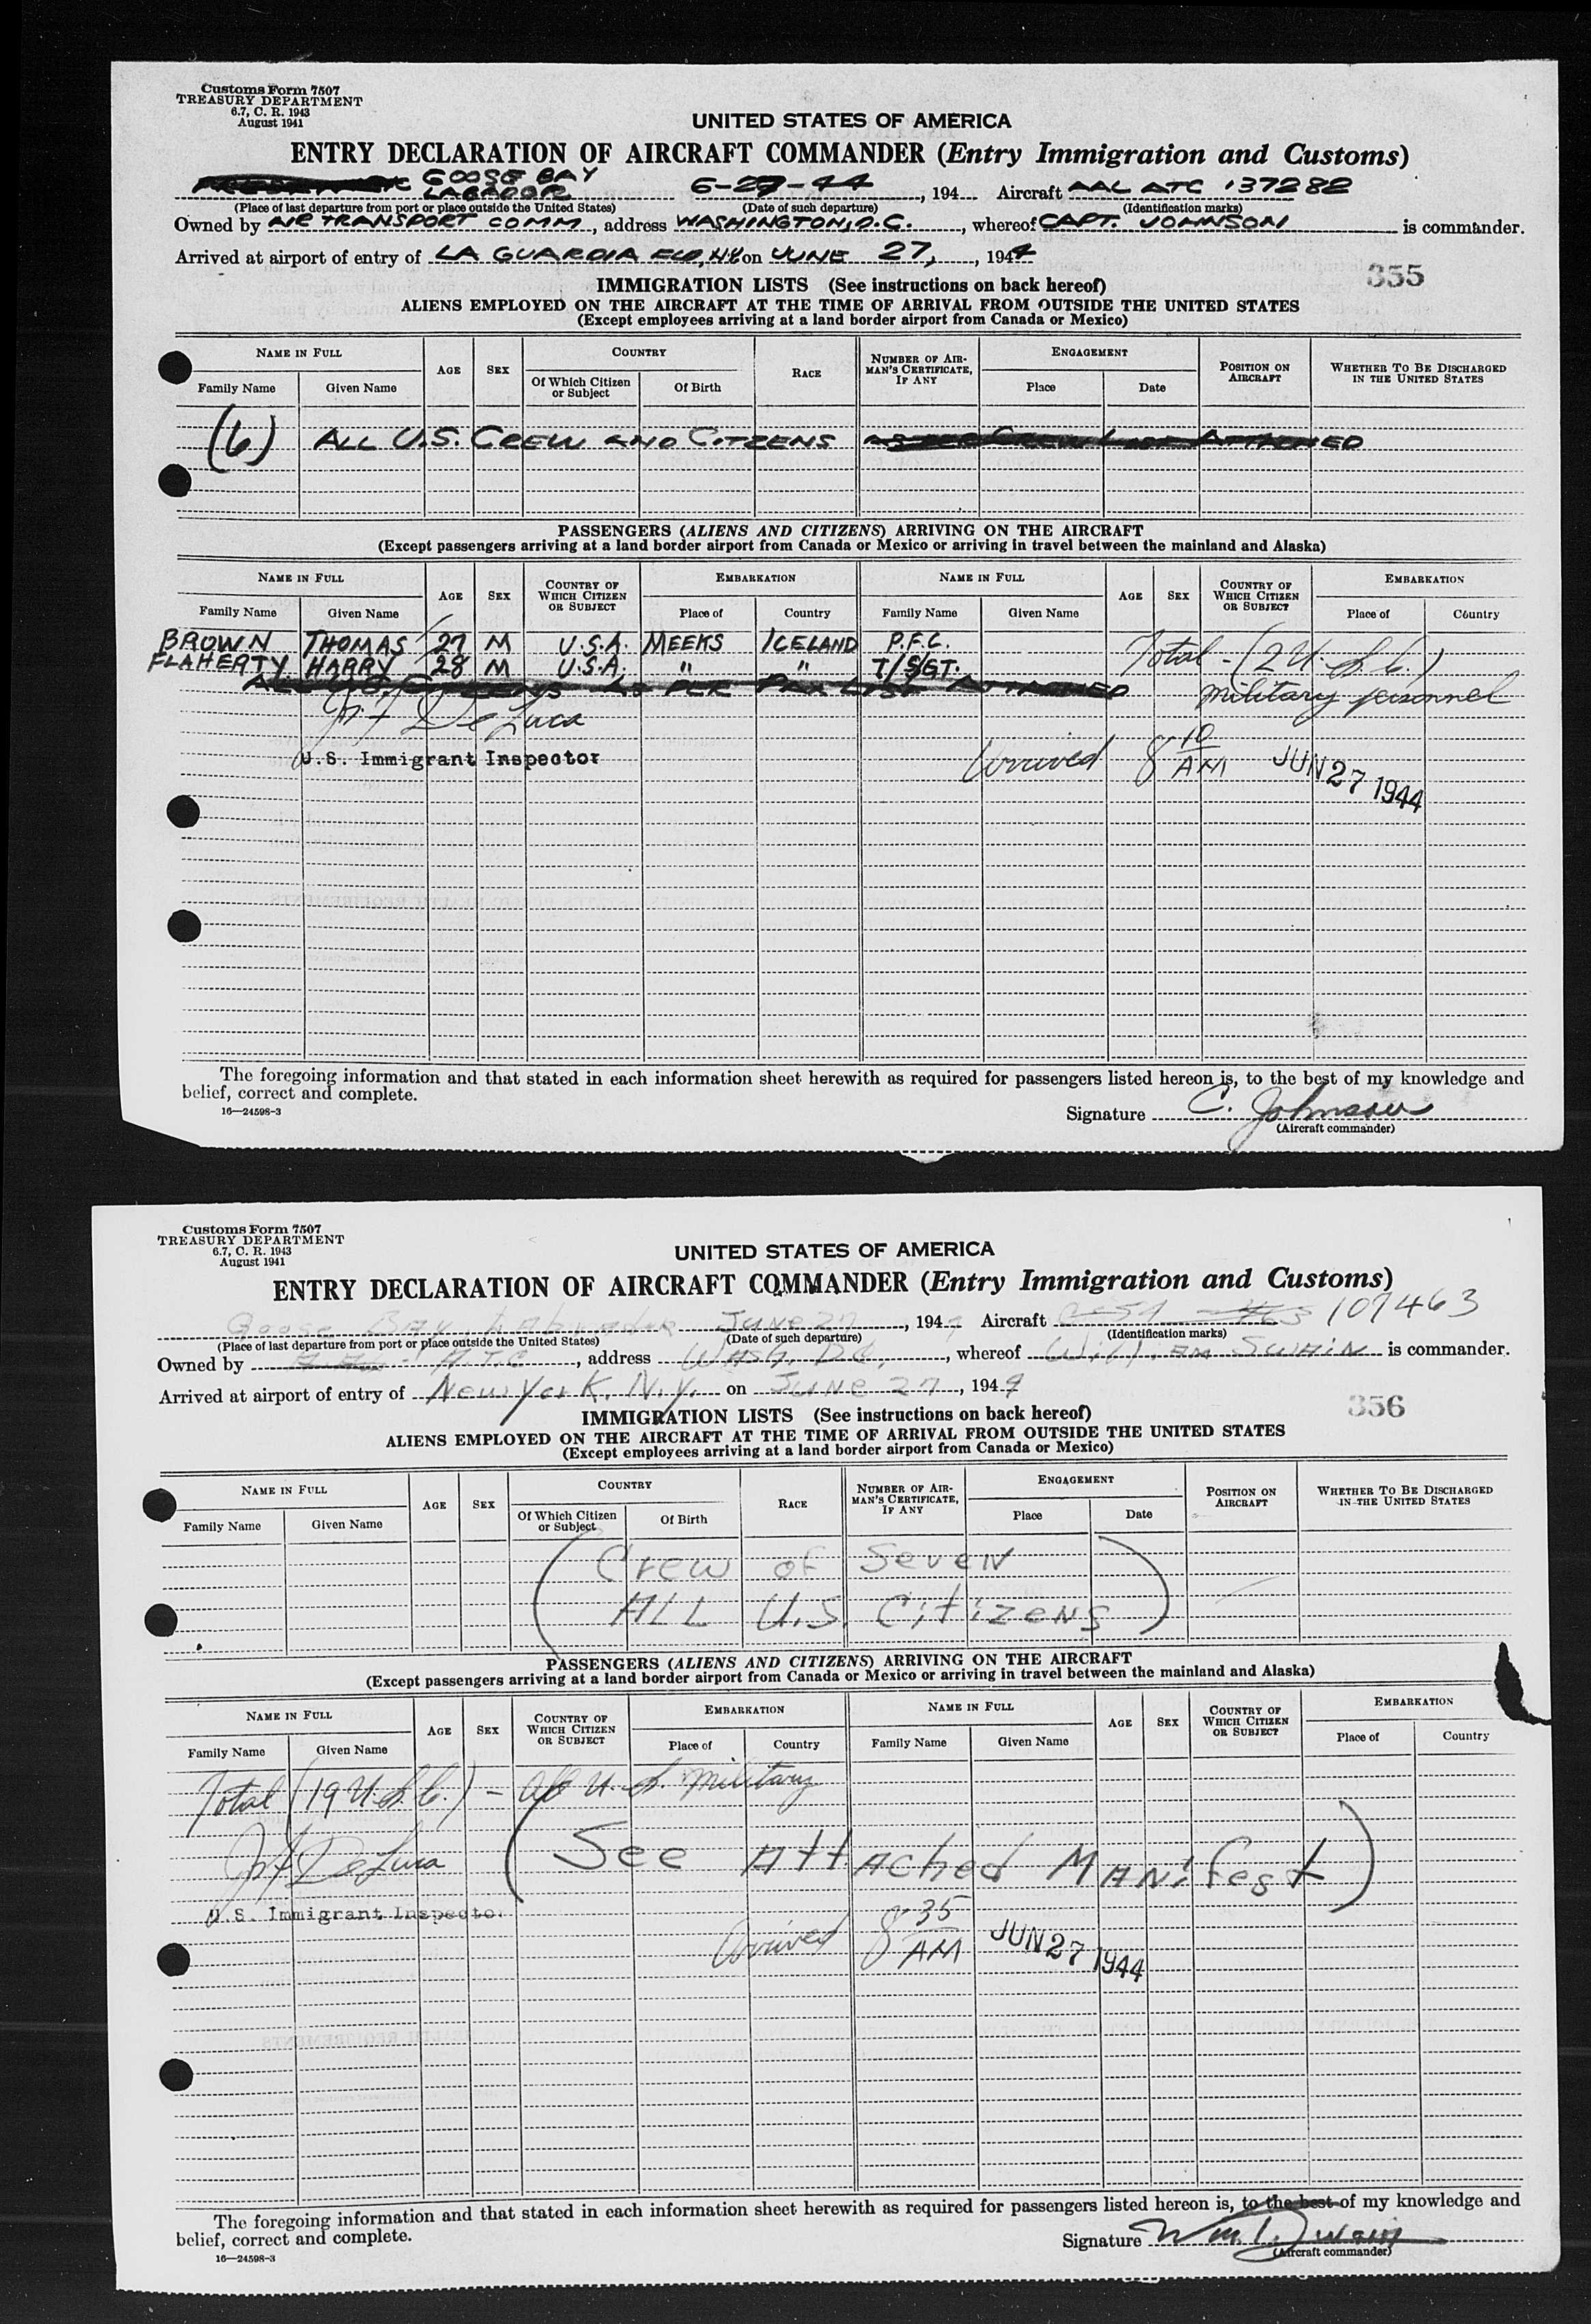 Customs Form 7507
TREASURY DEPARTMENT
6.7, C. R. 1943
August 1941
UNITED STATES OF AMERICA
ENTRY DECLARATION OF AIRCRAFT COMMANDER (Entry Immigration and Customs)
GOOSE BAY
LABADOR 6-27-44, 194 Aircraft AAL ATC 137282
(Place of last departure from port or place outside the United States) (Date of such departure) (Identification marks)
Owned by AIR TRANSPORT COMM, address WASHINGTON, D.C., whereof CAPT. JOHNSON is commander.
Arrived at airport of entry of LA GUARDIA FLD, N.Y. on JUNE 27, 1944
355
IMMIGRATION LISTS (See instructions on back hereof)
ALIENS EMPLOYED ON THE AIRCRAFT AT THE TIME OF ARRIVAL FROM OUTSIDE THE UNITED STATES
(Except employees arriving at a land border airport from Canada or Mexico)
NAME IN FULL AGE SEX COUNTRY RACE NUMBER OF AIRMAN'S CERTIFICATE, IF ANY ENGAGEMENT POSITION ON AIRCRAFT WHETHER TO BE DISCHARGED IN THE UNITED STATES
Family Name Given Name Of Which Citizen or Subject Of Birth Place Date
(6) ALL U.S. CREW AND CITIZENS AS PER CREW LIST ATTACHED
PASSENGERS (ALIENS AND CITIZENS) ARRIVING ON THE AIRCRAFT
(Except passengers arriving at a land border airport from Canada or Mexico or arriving in travel between the mainland and Alaska)
NAME IN FULL AGE SEX COUNTRY OF WHICH CITIZEN OR SUBJECT EMBARKATION NAME IN FULL AGE SEX COUNTRY OF WHICH CITIZEN OR SUBJECT EMBARKATION
Family Name Given Name Place of Country Family Name Given Name Place of Country
BROWN THOMAS 27 M U.S.A. MEEKS ICELAND P.F.C.
FLAHERTY HARRY 28 M U.S.A. " " T/SGT. Total - (2 U.S.C.)
ALL U.S. CITIZENS AS PER PAX LIST ATTACHED military personnel
J. F. DeLuca
U.S. Immigrant Inspector
Arrived 8 10 AM JUN 27 1944
The foregoing information and that stated in each information sheet herewith as required for passengers listed hereon is, to the best of my knowledge and
belief, correct and complete.
16—24598-3
Signature C. Johnson
(Aircraft commander)
Customs Form 7507
TREASURY DEPARTMENT
6.7, C. R. 1943
August 1941
UNITED STATES OF AMERICA
ENTRY DECLARATION OF AIRCRAFT COMMANDER (Entry Immigration and Customs)
Goose Bay, Labrador June 27, 194 Aircraft C-54 107463
(Place of last departure from port or place outside the United States) (Date of such departure) (Identification marks)
Owned by A.T.C., address Wash. D.C., whereof William Swain is commander.
Arrived at airport of entry of New York, N.Y. on June 27, 1944
356
IMMIGRATION LISTS (See instructions on back hereof)
ALIENS EMPLOYED ON THE AIRCRAFT AT THE TIME OF ARRIVAL FROM OUTSIDE THE UNITED STATES
(Except employees arriving at a land border airport from Canada or Mexico)
NAME IN FULL AGE SEX COUNTRY RACE NUMBER OF AIRMAN'S CERTIFICATE, IF ANY ENGAGEMENT POSITION ON AIRCRAFT WHETHER TO BE DISCHARGED IN THE UNITED STATES
Family Name Given Name Of Which Citizen or Subject Of Birth Place Date
(Crew of Seven
All U.S. Citizens)
PASSENGERS (ALIENS AND CITIZENS) ARRIVING ON THE AIRCRAFT
(Except passengers arriving at a land border airport from Canada or Mexico or arriving in travel between the mainland and Alaska)
NAME IN FULL AGE SEX COUNTRY OF WHICH CITIZEN OR SUBJECT EMBARKATION NAME IN FULL AGE SEX COUNTRY OF WHICH CITIZEN OR SUBJECT EMBARKATION
Family Name Given Name Place of Country Family Name Given Name Place of Country
Total (19 U.S.C.) - All U.S. Military
(See Attached Manifest)
J. F. DeLuca
U.S. Immigrant Inspector
Arrived 8 35 AM JUN 27 1944
The foregoing information and that stated in each information sheet herewith as required for passengers listed hereon is, to the best of my knowledge and
belief, correct and complete.
16—24598-3
Signature Wm. I. Swain
(Aircraft commander)